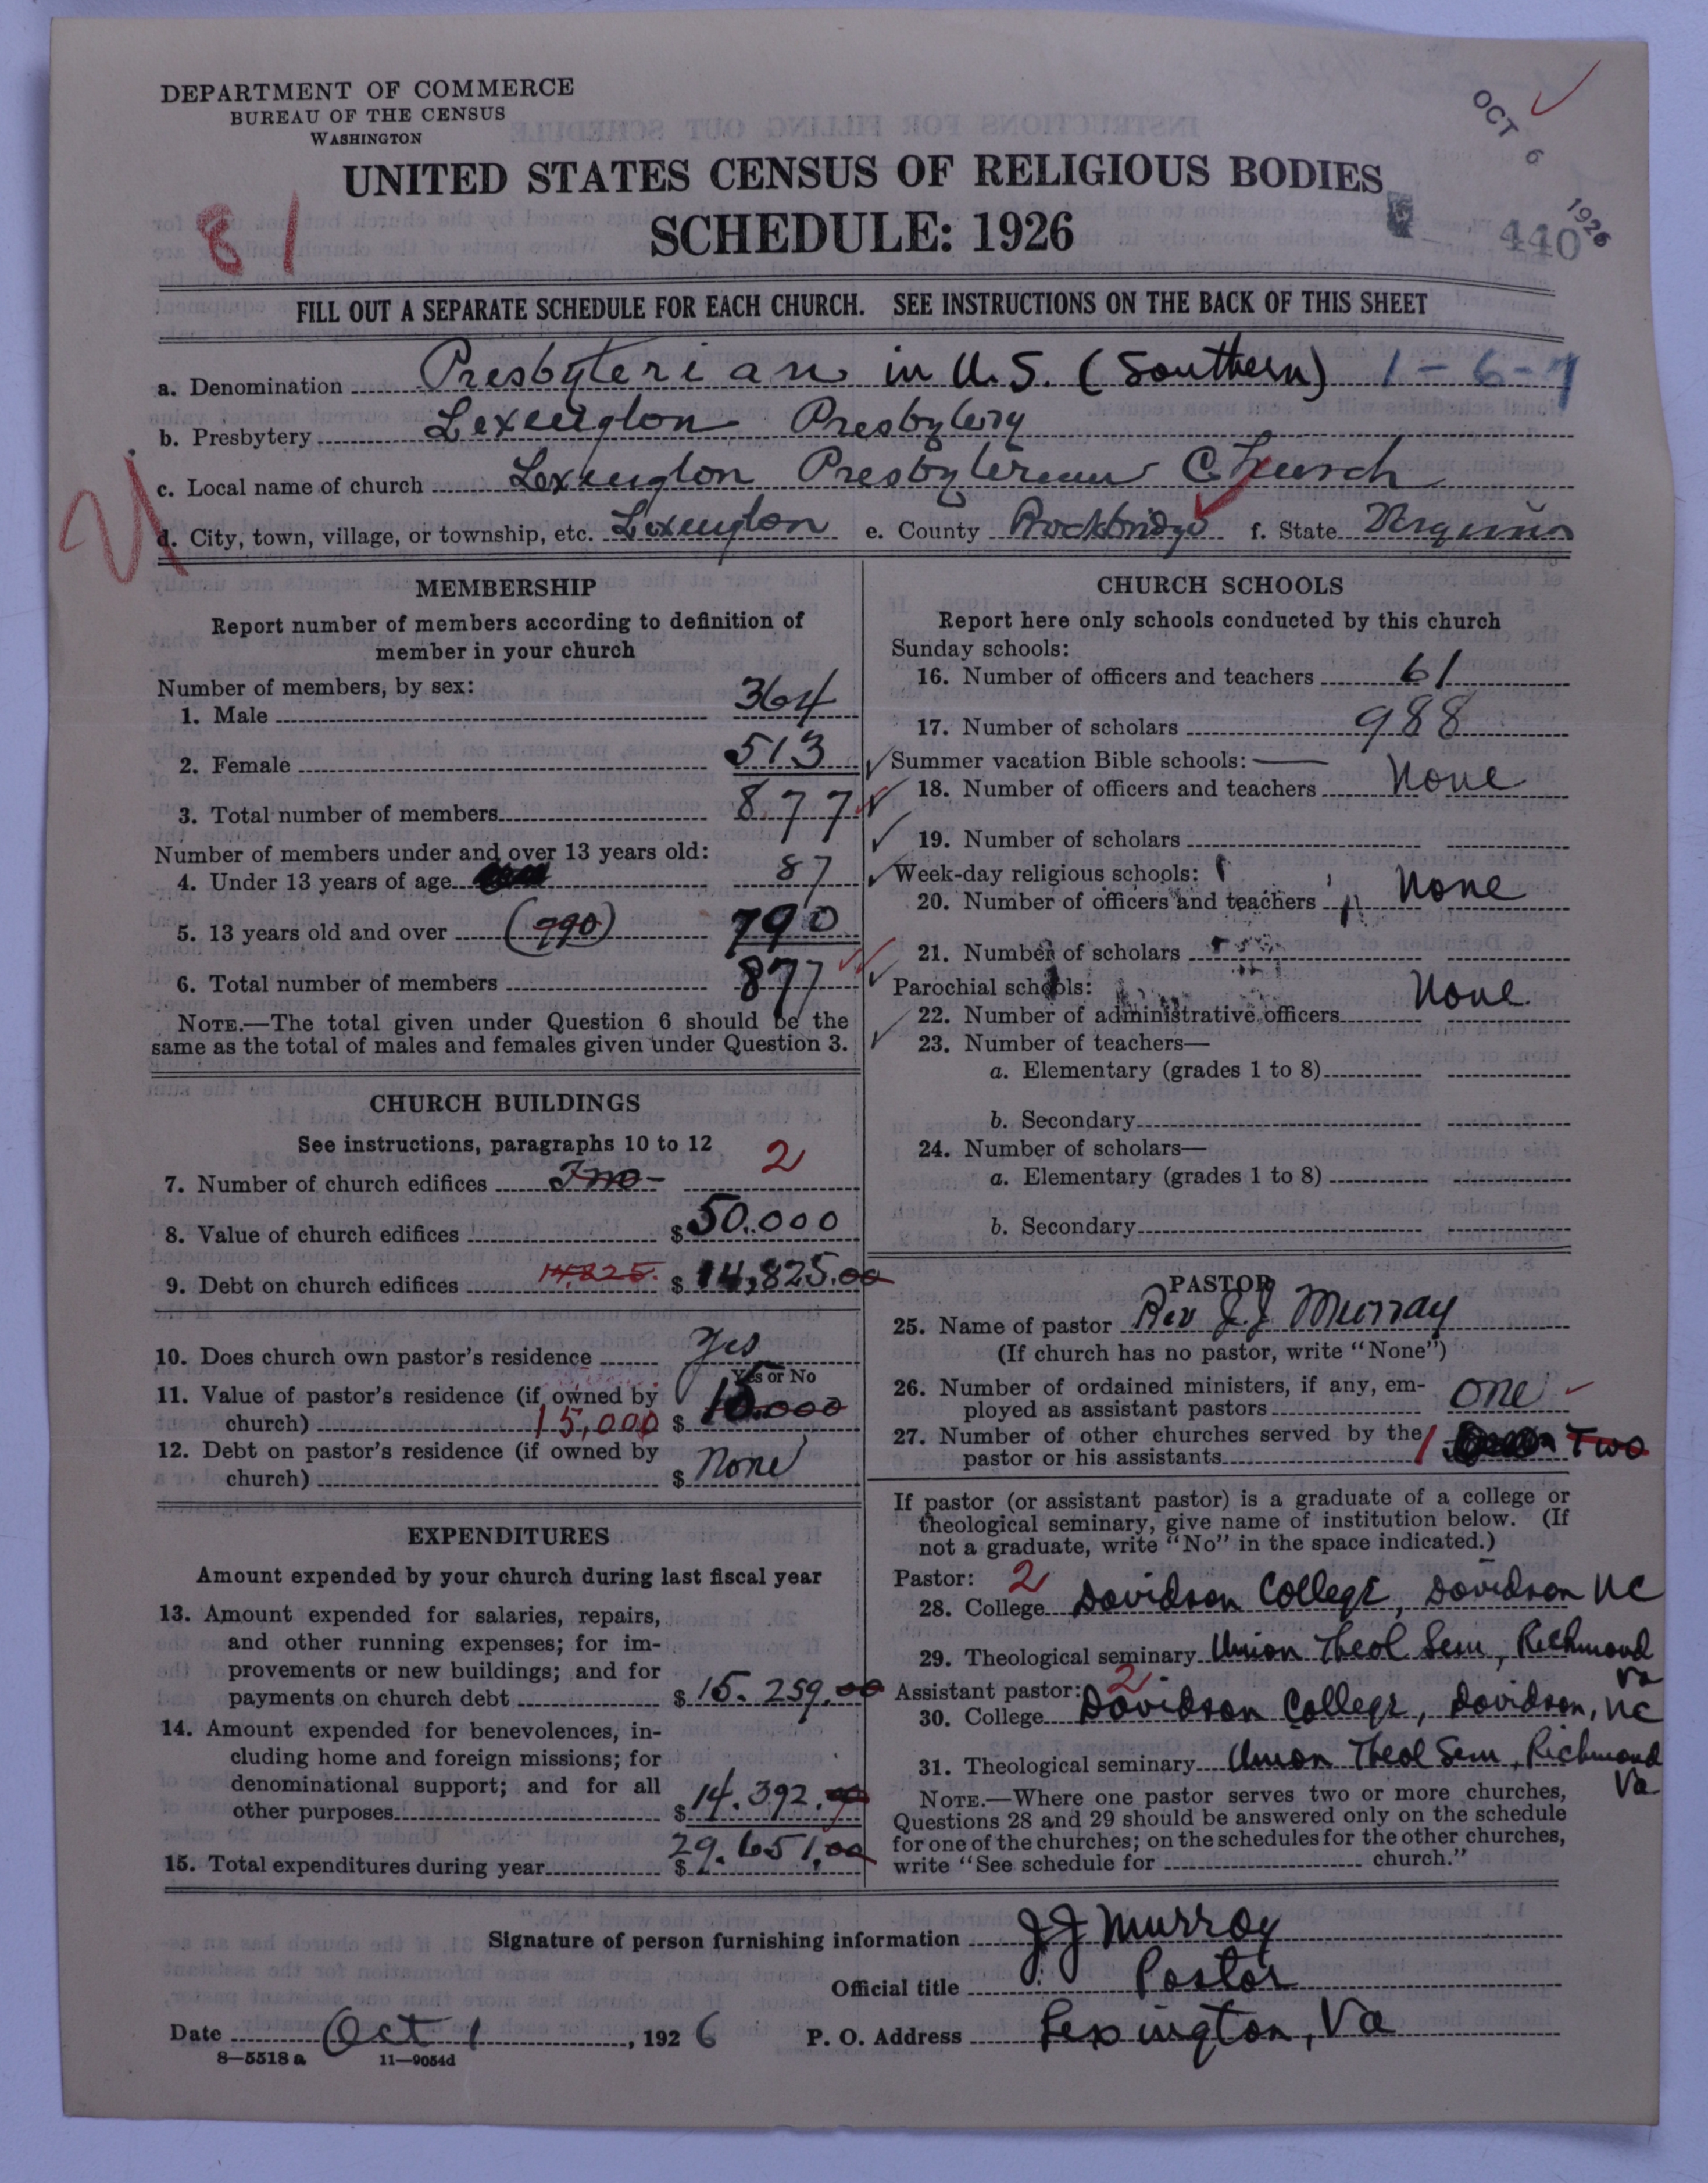 DEPARTMENT OF COMMERCE
BUREAU OF THE CENSUS
WASHINGTON
OCT 6 1926
UNITED STATES CENSUS OF RELIGIOUS BODIES
81
SCHEDULE: 1926
440
FILL OUT A SEPARATE SCHEDULE FOR EACH CHURCH. SEE INSTRUCTIONS ON THE BACK OF THIS SHEET
a. Denomination Presbyterian in U.S. (Southern) 1-6-7
b. Presbytery Lexington Presbytery
c. Local name of church Lexington Presbyterian Church
d. City, town, village, or township, etc. Lexington e. County Rockbridge f. State Virginia
MEMBERSHIP
Report number of members according to definition of
member in your church
Number of members, by sex:
1. Male 364
2. Female 513
3. Total number of members 877
Number of members under and over 13 years old:
4. Under 13 years of age 87
5. 13 years old and over (790) 790
6. Total number of members 877
NOTE.—The total given under Question 6 should be the
same as the total of males and females given under Question 3.
CHURCH BUILDINGS
See instructions, paragraphs 10 to 12
7. Number of church edifices Two 2
8. Value of church edifices $ 50.000
9. Debt on church edifices 14,825. $ 14,825.00
10. Does church own pastor's residence Yes
Yes or No
11. Value of pastor's residence (if owned by
church) 15,000 $ 15.000
12. Debt on pastor's residence (if owned by
church) $ None
EXPENDITURES
Amount expended by your church during last fiscal year
13. Amount expended for salaries, repairs,
and other running expenses; for im-
provements or new buildings; and for
payments on church debt $ 15.259.00
14. Amount expended for benevolences, in-
cluding home and foreign missions; for
denominational support; and for all
other purposes $ 14.392.00
15. Total expenditures during year $ 29.651.00
CHURCH SCHOOLS
Report here only schools conducted by this church
Sunday schools:
16. Number of officers and teachers 61
17. Number of scholars 988
Summer vacation Bible schools:
18. Number of officers and teachers None
19. Number of scholars
Week-day religious schools:
20. Number of officers and teachers None
21. Number of scholars
Parochial schools:
22. Number of administrative officers None.
23. Number of teachers—
a. Elementary (grades 1 to 8)
b. Secondary
24. Number of scholars—
a. Elementary (grades 1 to 8)
b. Secondary
PASTOR
25. Name of pastor Rev J.J Murray
(If church has no pastor, write "None")
26. Number of ordained ministers, if any, em-
ployed as assistant pastors one
27. Number of other churches served by the
pastor or his assistants 1 Two
If pastor (or assistant pastor) is a graduate of a college or
theological seminary, give name of institution below. (If
not a graduate, write "No" in the space indicated.)
Pastor: 2
28. College Davidson College, Davidson NC
29. Theological seminary Union Theol Sem, Richmond
Va
Assistant pastor: 2
30. College Davidson College, Davidson, NC
31. Theological seminary Union Theol Sem, Richmond
Va
NOTE.—Where one pastor serves two or more churches,
Questions 28 and 29 should be answered only on the schedule
for one of the churches; on the schedules for the other churches,
write "See schedule for church."
Signature of person furnishing information J J Murray
Official title Pastor
Date Oct 1, 1926 P. O. Address Lexington, Va
8—5518 a 11—9054d